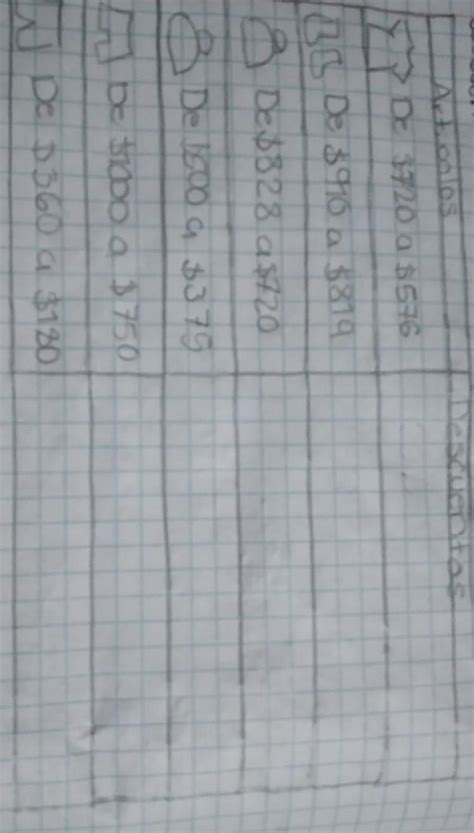 Artículos Descuentos
De $720 a $576
De $910 a $819
De $828 a $720
De 1500 a $375
De $1000 a $750
De $360 a $180